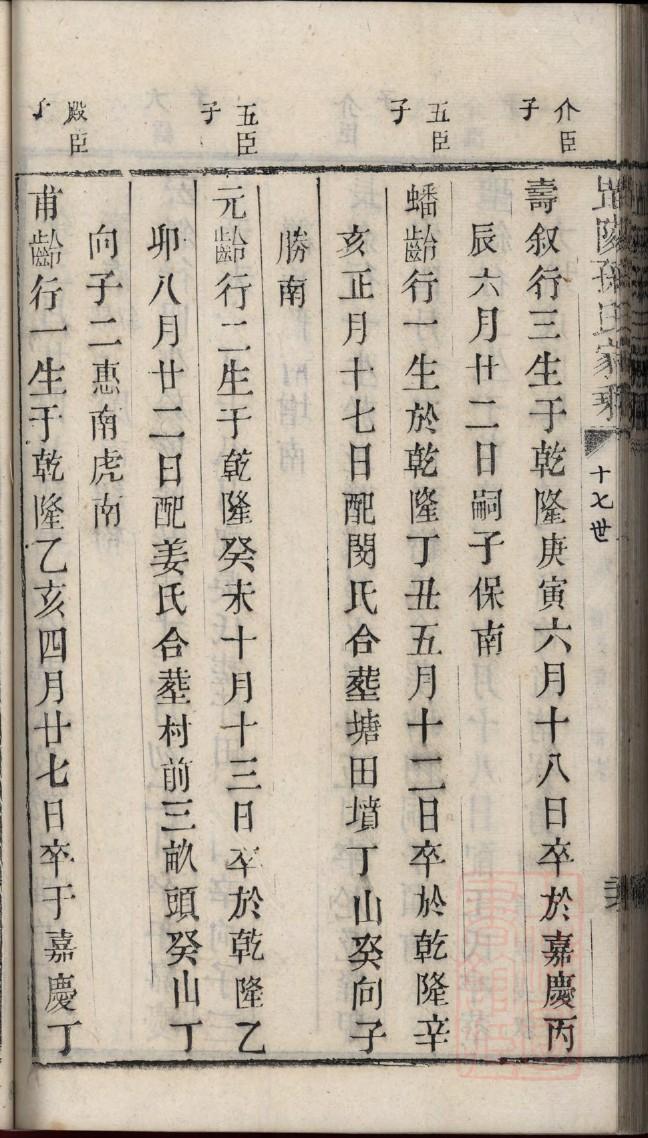 毘陵孫氏家乘
十七世
介臣子
壽叙行三生于乾隆庚寅六月十八日卒於嘉慶丙
辰六月廿二日嗣子保南
五臣子
蟠齡行一生於乾隆丁丑五月十二日卒於乾隆辛
亥正月十七日配閔氏合塟塘田墳丁山癸向子
勝南
五臣子
元齡行二生于乾隆癸未十月十三日卒於乾隆乙
卯八月廿二日配姜氏合塟村前三畝頭癸山丁
向子二惠南虎南
殿臣子
甫齡行一生于乾隆乙亥四月廿七日卒于嘉慶丁